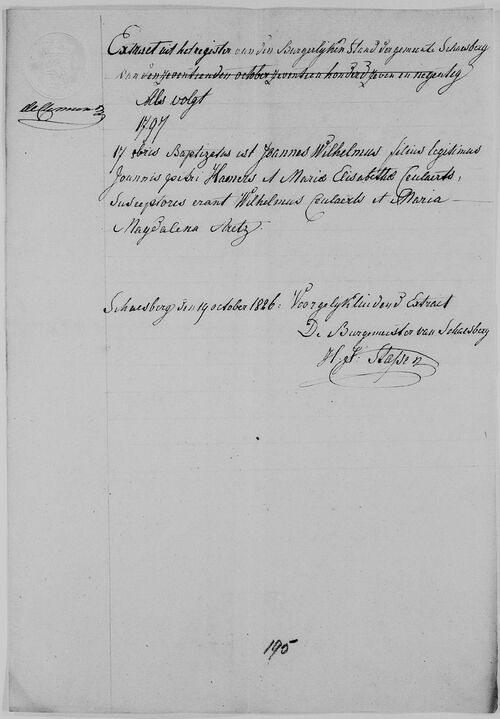 Extract uit het register van den Burgerlyken Stand der gemeente Schaesberg
van den zeventienden october zeventien honderd zeven en negentig
Als volgt
1797
17 obris Baptizatus est Joannes Wilhelmus filius legitimus
Joannis petri Hamers et Mariæ Elisabethæ Ceulaerts,
Susceptores erant Wilhelmus Ceulaerts et Maria
Magdalena Aretz.
Schaesberg den 19 october 1826. Voor gelykluidend Extract
De Burgemeester van Schaesberg
H. J. Stassen
195